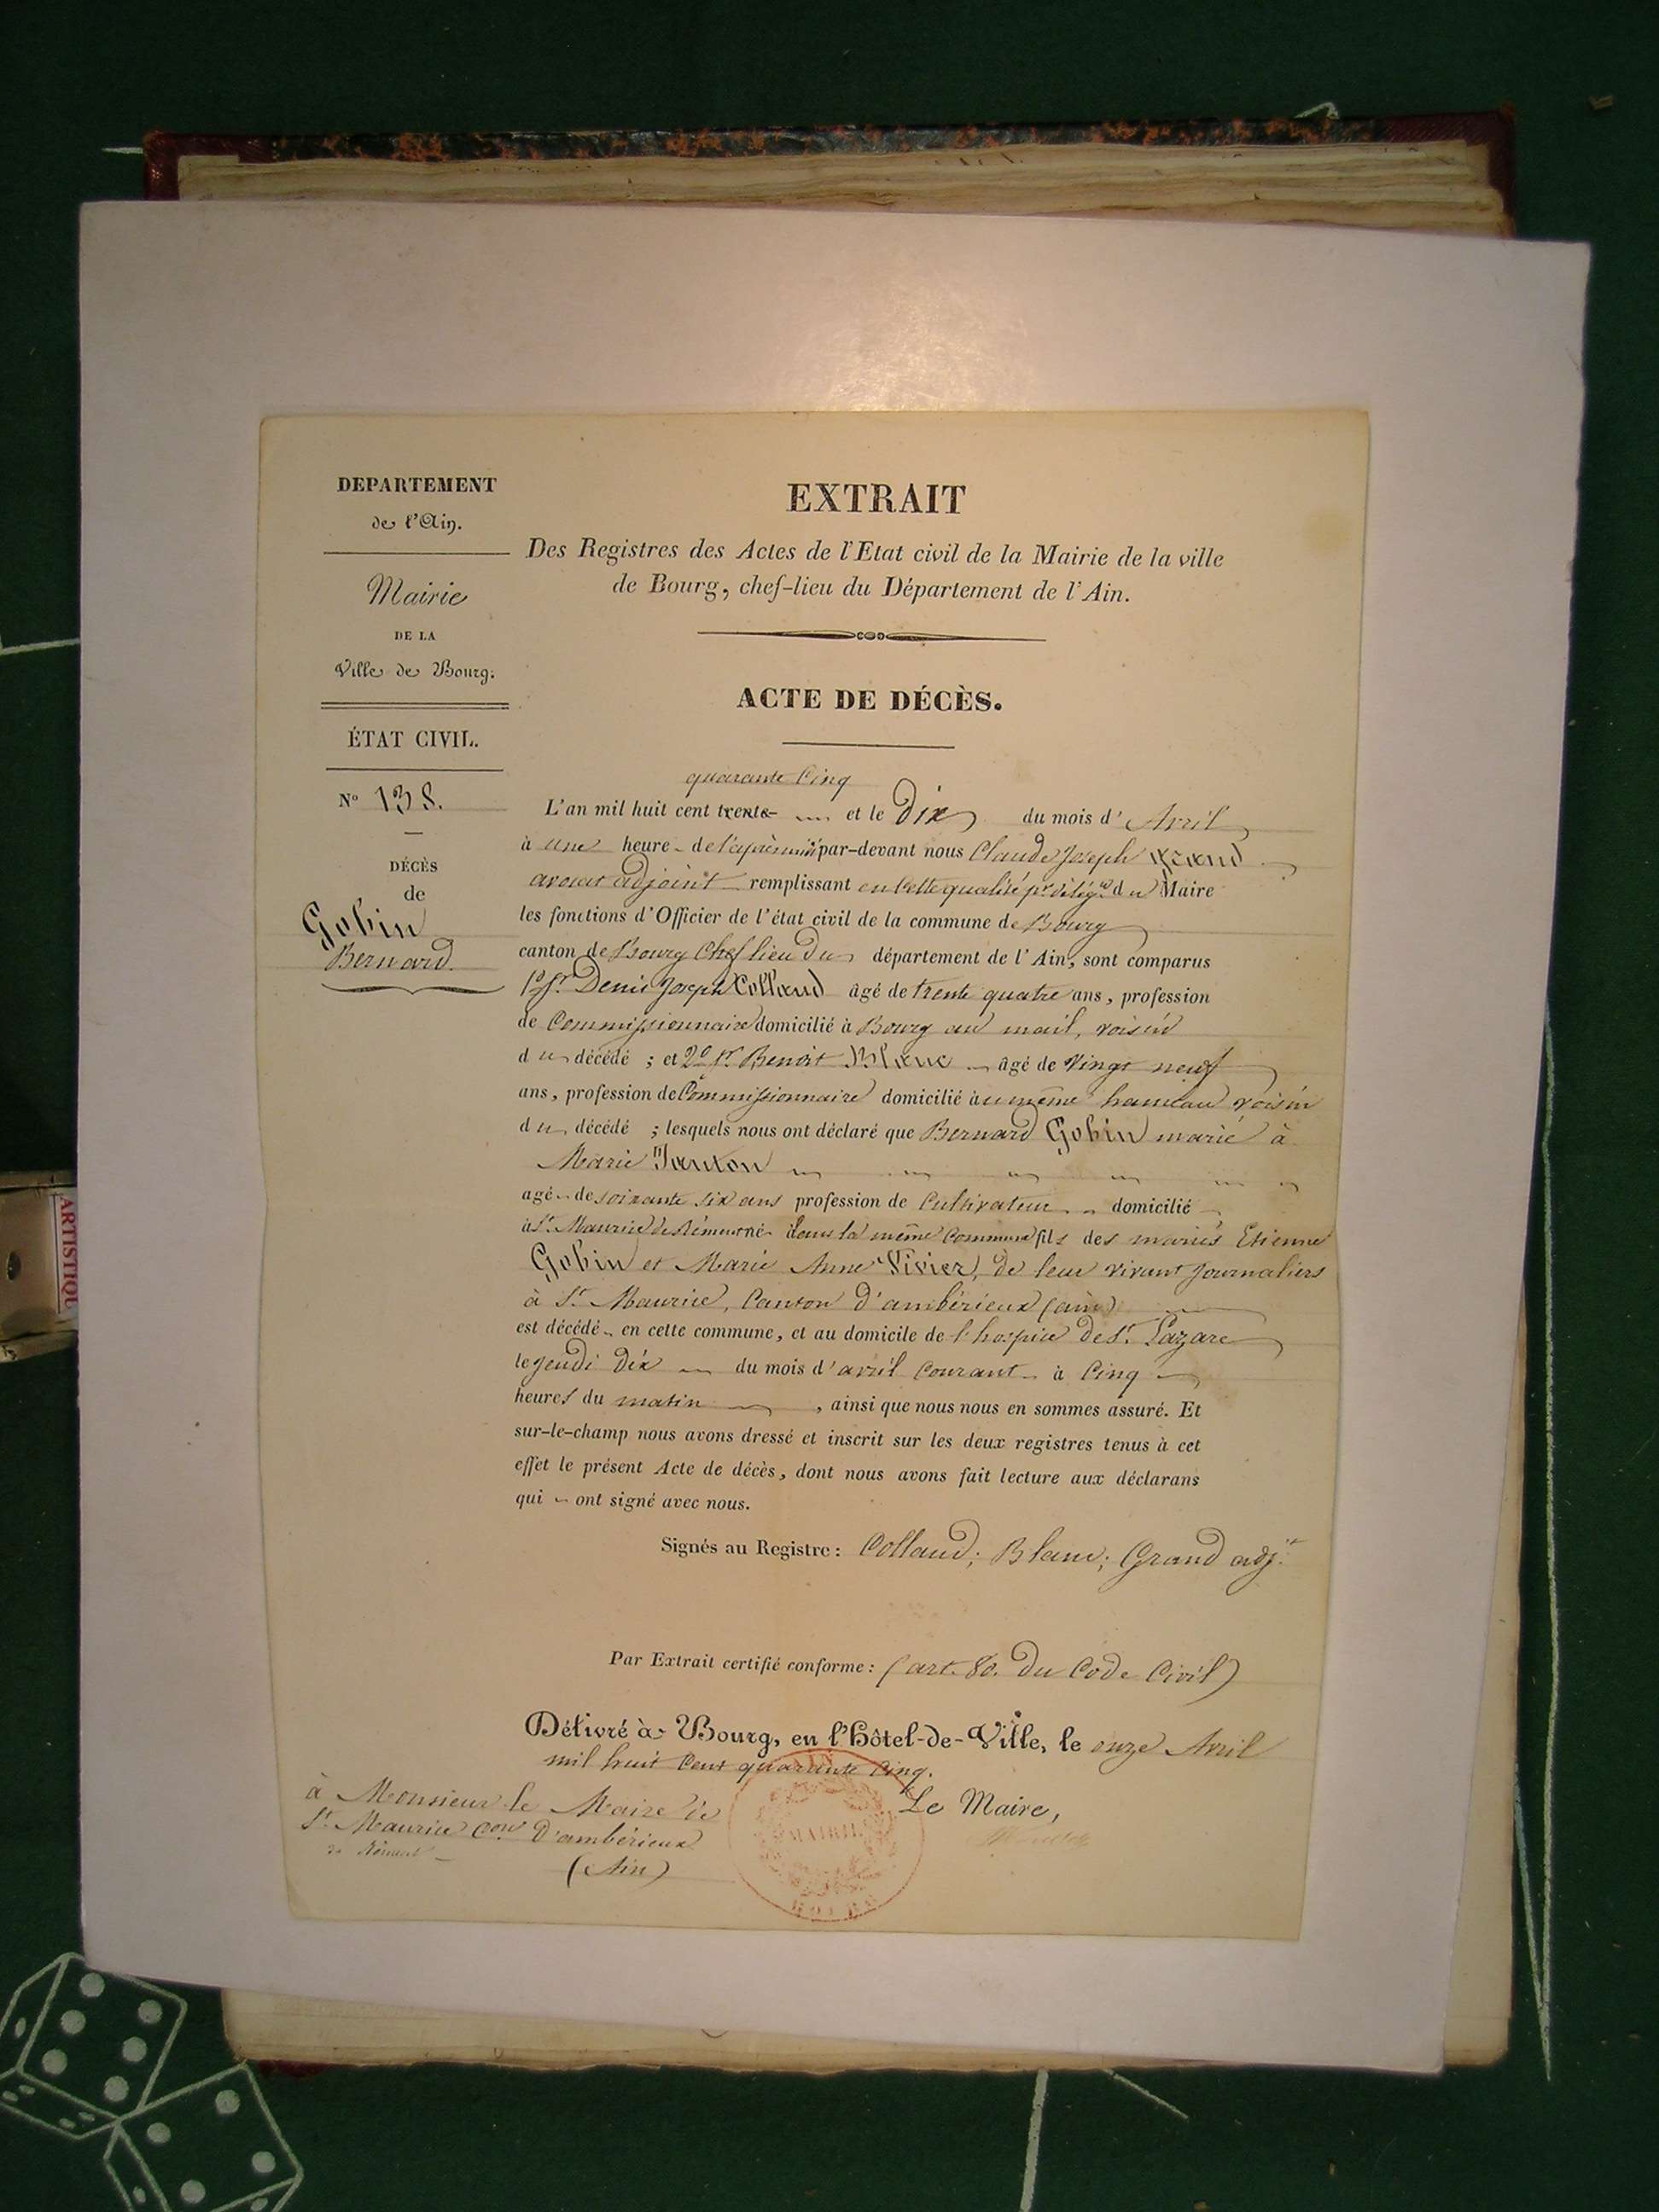 DEPARTEMENT
de l'Ain.
Mairie
DE LA
Ville de Bourg.
ÉTAT CIVIL.
N° 138.
DÉCÈS
de
Gobin
Bernard.
EXTRAIT
Des Registres des Actes de l'Etat civil de la Mairie de la ville
de Bourg, chef-lieu du Département de l'Ain.
ACTE DE DÉCÈS.
quarante Cinq
L'an mil huit cent trente et le Dix du mois d'Avril
à une heure de l'après midi par-devant nous Claude Joseph Grand
avocat adjoint remplissant en Cette qualité pr délégon du Maire
les fonctions d'Officier de l'état civil de la commune de Bourg
canton de Bourg Chef lieu du département de l'Ain, sont comparus
1° Sr. Denis Joseph Colland âgé de trente quatre ans, profession
de Commissionnaire domicilié à Bourg au mail, voisin
du décédé ; et 2° Sr. Benoit Blanc âgé de vingt neuf
ans, profession de Commissionnaire domicilié au même hameau voisin
du décédé ; lesquels nous ont déclaré que Bernard Gobin marié à
Marie Janton
agé de soixante six ans profession de Cultivateur domicilié
à St. Maurice de Rémens né dans la même Commune fils des mariés Etienne
Gobin et Marie Anne Vivier, de leur vivant Journaliers
à St. Maurice, Canton d'ambérieux (ain)
est décédé en cette commune, et au domicile de l'hospice de St. Lazare
le jeudi dix du mois d'avril Courant à Cinq
heures du matin , ainsi que nous nous en sommes assuré. Et
sur-le-champ nous avons dressé et inscrit sur les deux registres tenus à cet
effet le présent Acte de décès, dont nous avons fait lecture aux déclarans
qui ont signé avec nous.
Signés au Registre : Colland ; Blanc ; Grand adjt.
Par Extrait certifié conforme : (art. 80. Du Code Civil)
Délivré à Bourg, en l'Hôtel-de-Ville, le onze Avril
mil huit Cent quarante Cinq.
Le Maire,
à Monsieur le Maire de
St. Maurice Con D'ambérieux
de Rémens
(Ain)
AIN
MAIRIE
ARTISTIQU